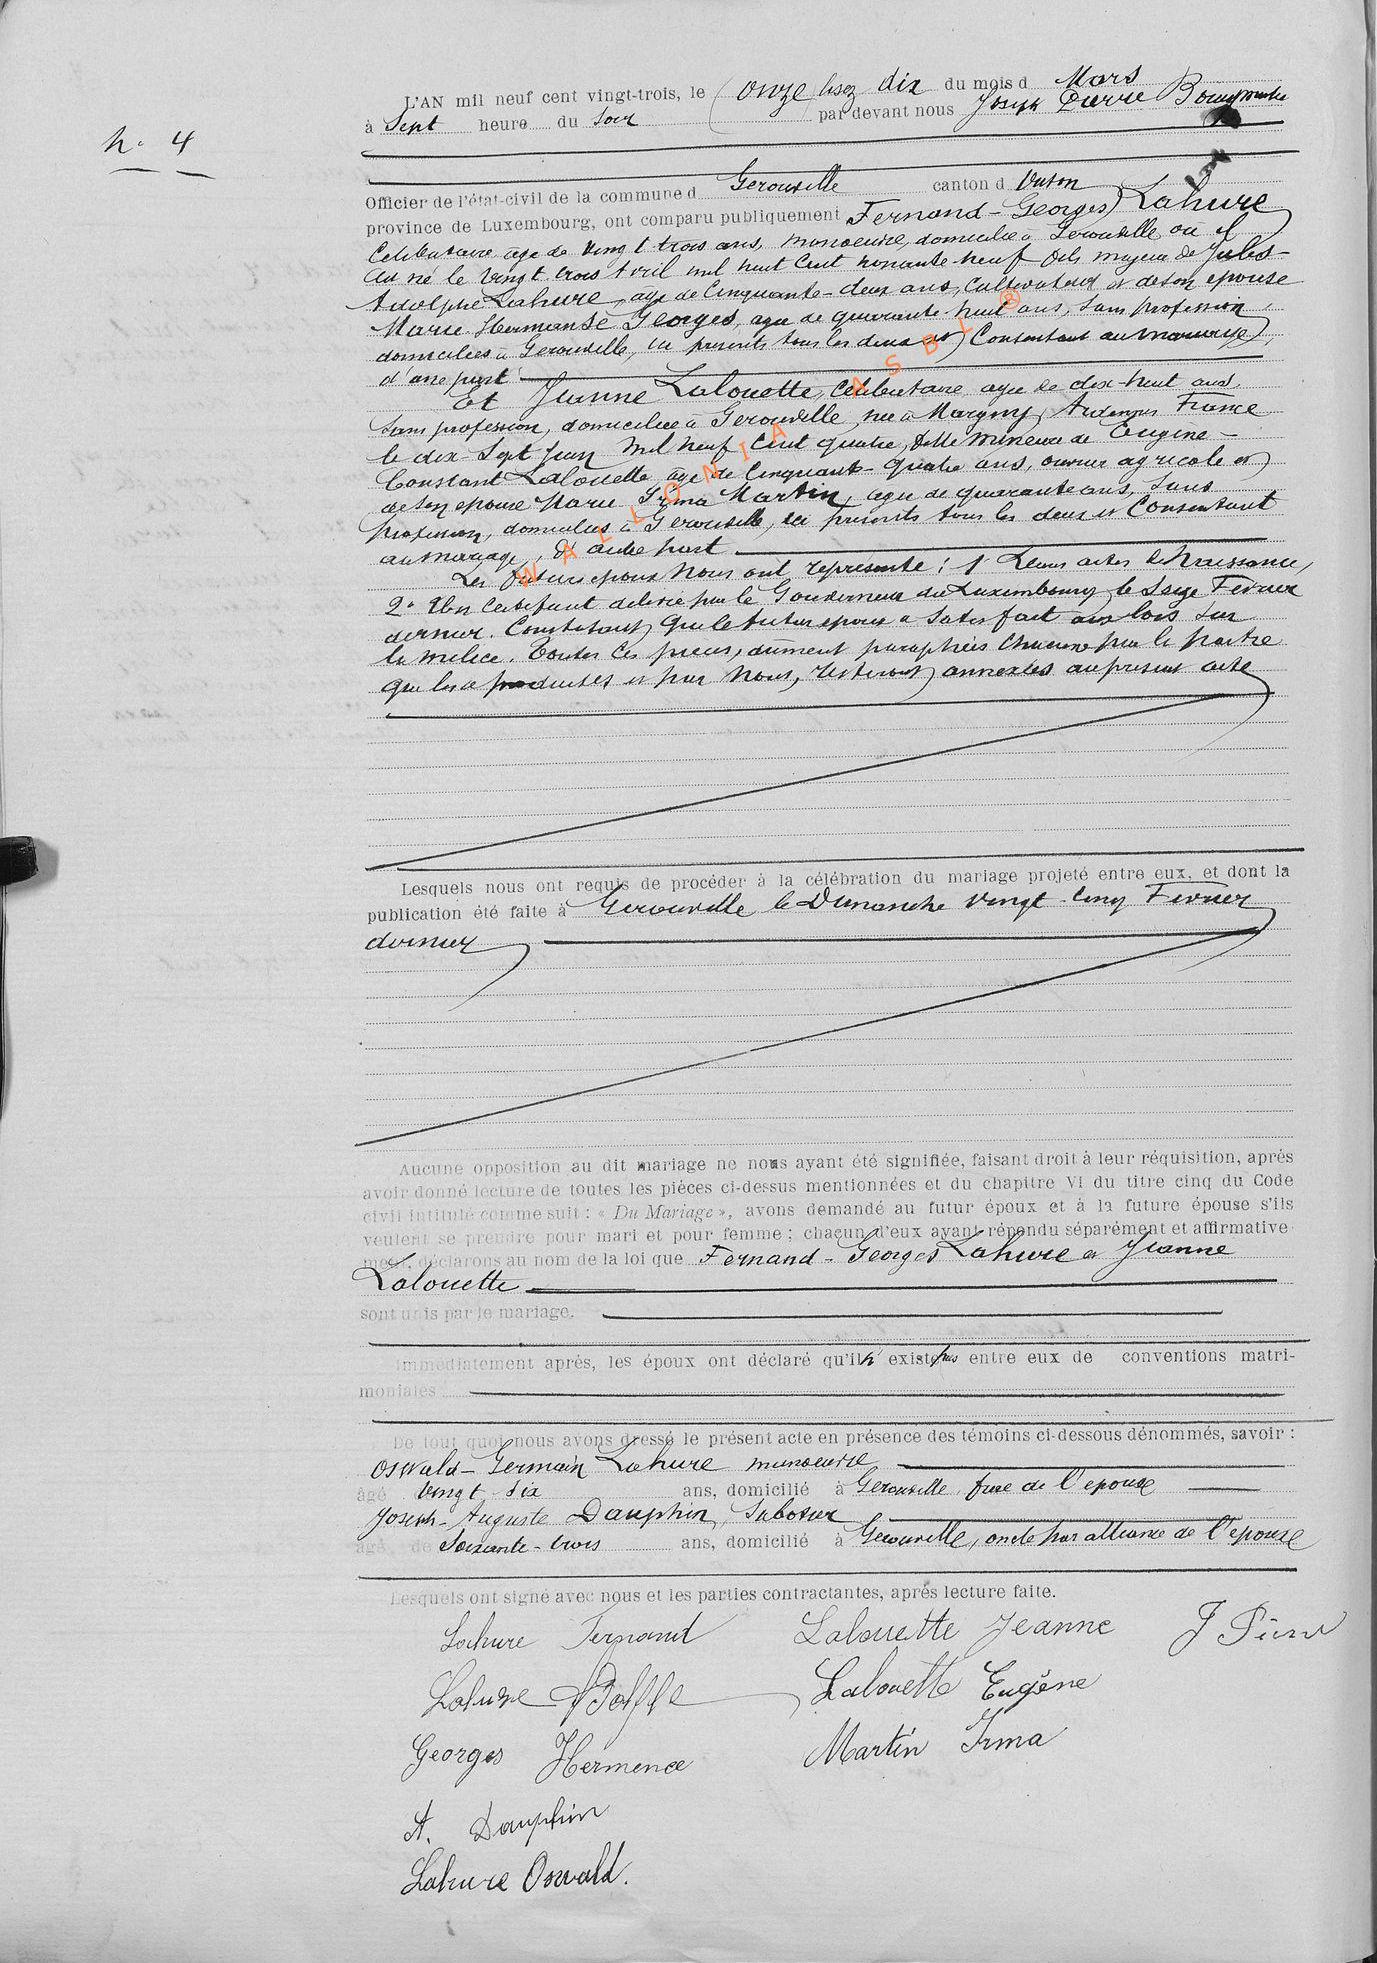 n° 4
L'AN mil neuf cent vingt-trois, le (onze lisez dix du mois d Mars
à Sept heure du Soir par devant nous Joseph Pierre Bourgmestre
Officier de l'état-civil de la commune d Gerouville canton d Virton
province de Luxembourg, ont comparu publiquement Fernand-Georges Lahure
Célibataire âgé de vingt trois ans, manoeuvre, domicilié à Gerouville ou il
est né le vingt trois Avril mil huit cent nonante-neuf fils majeur de Jules-
Adolphe Lahure, âgé de Cinquante-deux ans, Cultivateur et de son épouse
Marie Hermanse Georges, agée de quarante huit ans, sans profession,
domiciliés à Gerouville, ici présents tous les deux et Consentant au mariage,
d'une part
Et Jeanne Lalouette, Célibataire agée de dix-huit ans,
sans profession, domiciliée à Gerouville, née à Margny, Ardennes France
le dix-Sept Juin mil neuf Cent quatre, fille mineure de Eugène-
Constant Lalouette, âgé de Cinquante-quatre ans, ouvrier agricole et
de son épouse Marie Irma Martin, agée de quarante ans, sans
profession, domiciliés à Gerouville, ici présents tous les deux et Consentant
au mariage, d'autre part
Les futurs époux Nous ont représenté : 1° Leurs actes de Naissance,
2° Un Certificat délivré par le Gouverneur du Luxembourg le Seize Février
dernier. Constatant que le futur époux a satisfait aux lois sur
la milice. Toutes Ces pièces, dûment paraphées Chacune par la partie
qui les a produites et par Nous, resteront annexées au présent acte
Lesquels nous ont requis de procéder à la célébration du mariage projeté entre eux, et dont la
publication été faite à Gerouville le Dimanche vingt-Cinq Février
dernier
Aucune opposition au dit mariage ne nous ayant été signifiée, faisant droit à leur réquisition, après
avoir donné lecture de toutes les pièces ci-dessus mentionnées et du chapitre VI du titre cinq du Code
civil intitulé comme suit : « Du Mariage », avons demandé au futur époux et à la future épouse s'ils
veulent se prendre pour mari et pour femme ; chacun d'eux ayant répondu séparément et affirmative-
ment, déclarons au nom de la loi que Fernand-Georges Lahure et Jeanne
Lalouette
sont unis par le mariage.
Immédiatement après, les époux ont déclaré qu'il n' existe pas entre eux de conventions matri-
moniales
De tout quoi nous avons dressé le présent acte en présence des témoins ci-dessous dénommés, savoir :
Oswald-Germain Lahure manoeuvre
âgé vingt-six ans, domicilié à Gerouville frère de l'epoux
Joseph-Auguste Dauphin, Sabotier
âgé de Soixante-trois ans, domicilié à Gerouville, oncle par alliance de l'epouse
Lesquels ont signé avec nous et les parties contractantes, après lecture faite.
Lahure Fernand Lalouette Jeanne J Pierre
Lahure Adolphe Lalouette Eugène
Georges Hermence Martin Irma
A. Dauphin
Lahure Oswald.
WALLONIA ASBL ®